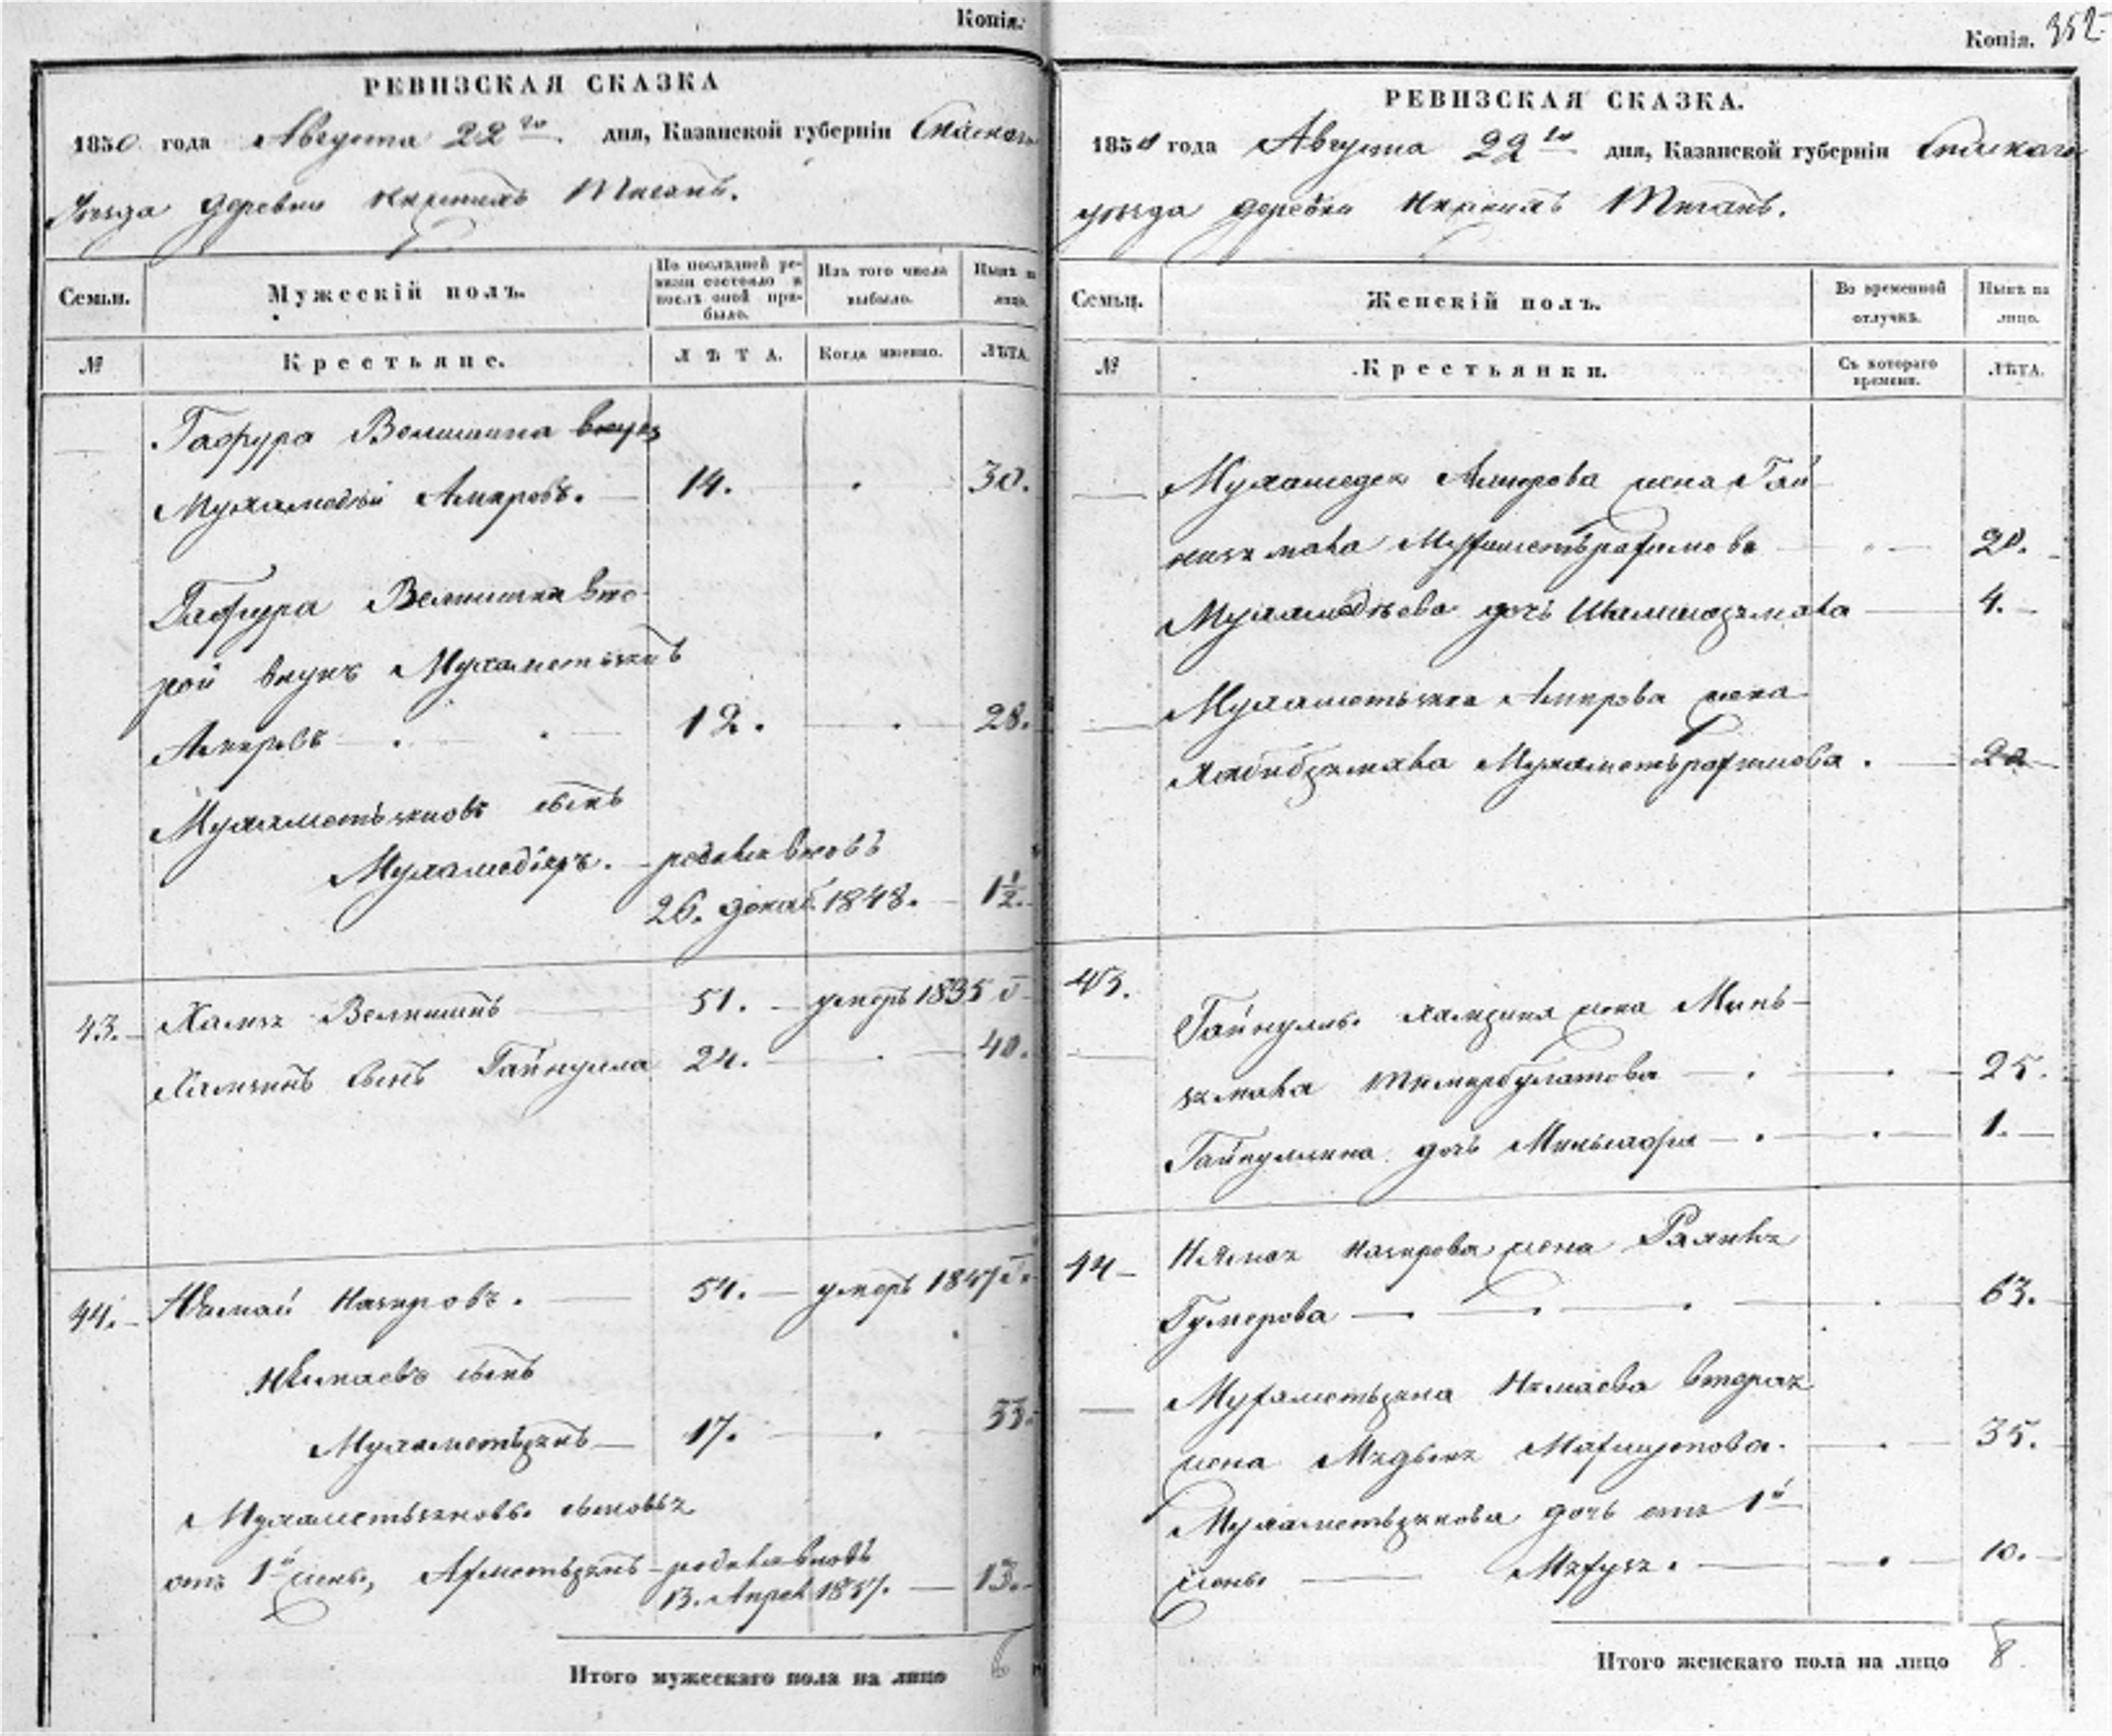 Копія.
РЕВИЗСКАЯ СКАЗКА
1850 года Августа 22го дня, Казанской губерніи Спаскаго
уѣзда деревни Тиганъ.
Семьи. Мужескій полъ. По послѣдней ревизіи состояло и послѣ оной прибыло. Изъ того числа выбыло. Нынѣ на лицо.
№ Крестьяне. ЛѢТА. Когда именно. ЛѢТА.
Гафура Велишина внукъ
Мухамедѣй Амировъ. 14. 30.
Гафура Велишина вто-
рой внукъ Мухаметьзянъ
Амировъ 12. 28.
Мухаметьзяновъ сынъ
Мухамедіяръ. родился вновь
26. декаб. 1848. 1½.
43. Хамзя Велишинъ 51. умеръ 1835 г.
Хамзинъ сынъ Гайнулла 24. 40.
44. Назировъ. 54. умеръ 1847 г.
сынъ
Мухаметьзянъ 17. 33.
Мухаметьзяновы сыновья
отъ 1й жены, Ахметьзянъ родился вновь
13. Апрел 1837. 13.
Итого мужескаго пола на лицо 6
Копія. 352
РЕВИЗСКАЯ СКАЗКА.
1850 года Августа 22го дня, Казанской губерніи Спаскаго
уѣзда деревни Тиганъ.
Семьи. Женскій полъ. Во временной отлучкѣ. Нынѣ на лицо.
№ Крестьянки. Съ котораго времени. ЛѢТА.
Мухамедея Амирова жена Гай-
низямала Мухаметьрахимова 20.
Мухамедѣева дочь Шамсизямала 4.
Мухаметьзяна Амирова жена
Хабибзямала Мухаметьрахимова. 20
43. Гайнуллы Хамзина жена Минь-
зямала Тимирбулатова 25.
Гайнуллина дочь Миньсафа 1.
44 Назирова жена
Гумерова 63.
Мухаметьзяна вторая
жена 35.
Мухаметьзянова дочь отъ 1й
жены 10.
Итого женскаго пола на лицо 8.